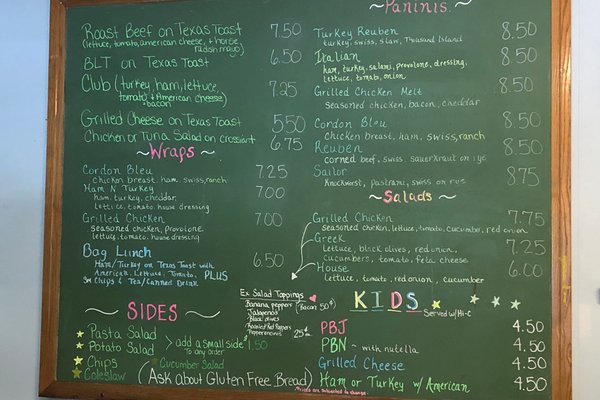 Roast Beef on Texas Toast 7.50
(lettuce, tomato, american cheese + horse
radish mayo)
BLT on Texas Toast 6.50
Club (turkey, ham, lettuce, 7.25
tomato + American cheese)
+ bacon
Grilled Cheese on Texas Toast 5.50
Chicken or Tuna Salad on croissant 6.75
~ Wraps ~
Cordon Bleu 7.25
Chicken breast, ham, swiss, ranch
Ham N Turkey 7.00
ham, turkey, cheddar,
lettuce, tomato, house dressing
Grilled Chicken 7.00
seasoned chicken, provolone,
lettuce, tomato, house dressing
Bag Lunch 6.50
Ham/Turkey on Texas Toast with
American, Lettuce, Tomato, PLUS
Sm Chips & Tea/Canned Drink
~ SIDES ~
Pasta Salad
Potato Salad
Chips
Coleslaw
add a small side $1.50
To any order
Cucumber Salad
(Ask about Gluten Free Bread)
Paninis ~
Turkey Reuben 8.50
turkey, swiss, slaw, Thousand Island
Italian 8.50
ham, turkey, salami, provolone, dressing,
lettuce, tomato, onion
Grilled Chicken Melt 8.50
Seasoned chicken, bacon, cheddar
Cordon Bleu 8.50
Chicken breast, ham, swiss, ranch
Reuben 8.50
corned beef, swiss, sauerkraut on rye
Sailor 8.75
Knockwurst, pastrami, swiss on rye
~ Salads ~
Grilled Chicken 7.75
Seasoned chicken, lettuce, tomato, cucumber, red onion
Greek 7.25
Lettuce, black olives, red onion,
cucumbers, tomato, feta cheese
House 6.00
lettuce, tomato, red onion, cucumber
Ex Salad Toppings
Banana peppers
Jalapenos
Black olives
Roasted Red Peppers
Pepperoncinis
25¢
(Bacon 50¢)
KIDS Served w/Hi-C
PBJ 4.50
PBN ~ with nutella 4.50
Grilled Cheese 4.50
Ham or Turkey w/ American 4.50
Prices are subjected to change.